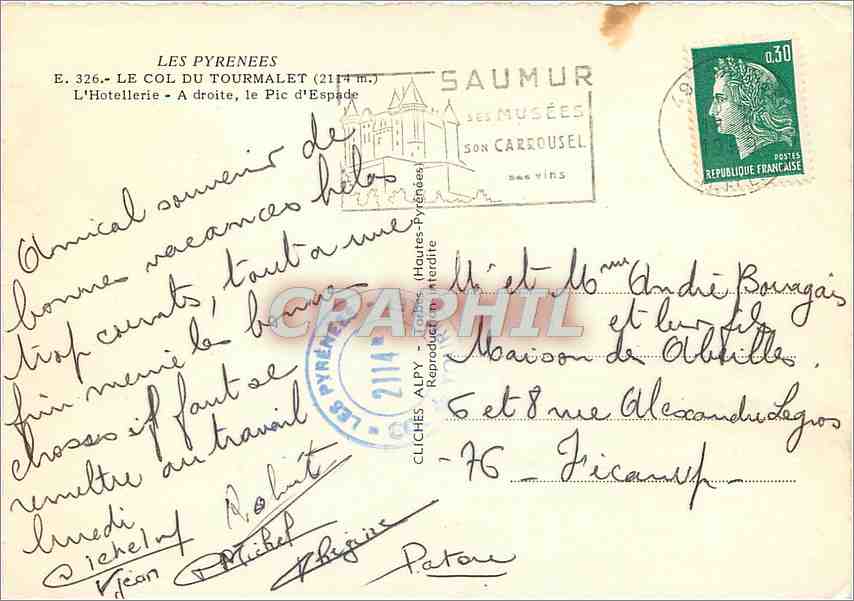 LES PYRENEES
E. 326.- LE COL DU TOURMALET (2114 m.)
L'Hotellerie - A droite, le Pic d'Espade
SAUMUR
SES MUSÉES
SON CARROUSEL
SES VINS
0,30
POSTES
REPUBLIQUE FRANÇAISE
Amical souvenir de
bonnes vacances hélas
trop courts, tout a une
fin même les bonnes
choses il faut se
remettre au travail
lundi
Jean
Michel
Patou
CLICHES ALPY - Tarbes (Hautes-Pyrénées)
Reproduction interdite
LES PYRÉNÉES
2114
CPARPHIL
Mr et Mme André Bouragais
et leur fils
Maison des Abeilles
6 et 8 rue Alexandre Legros
-76 - Fécamp -